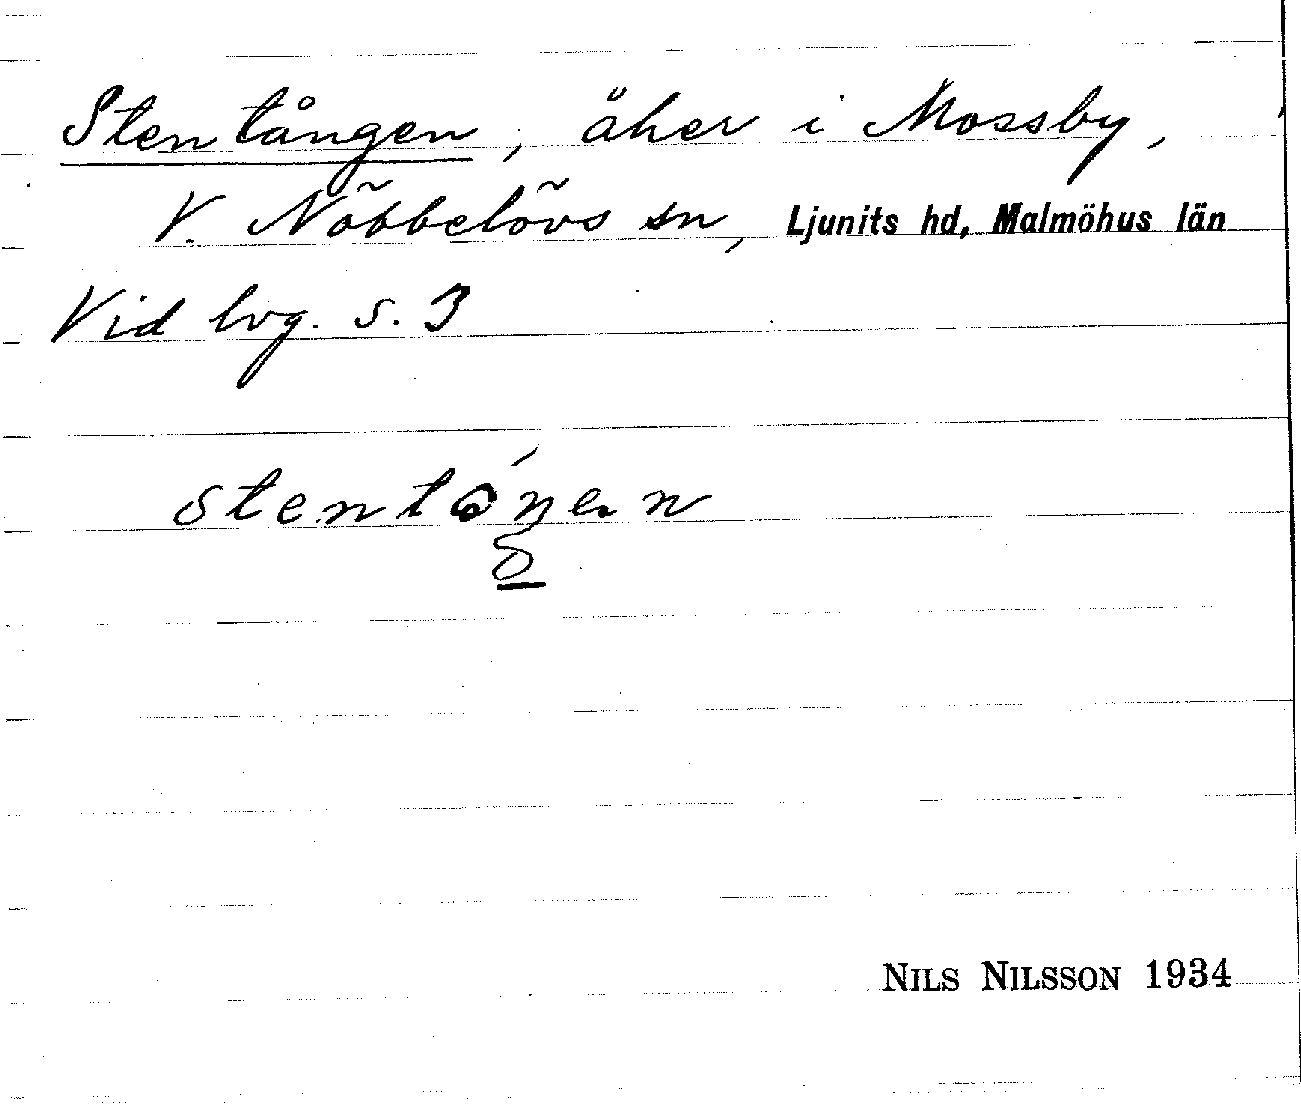 Stentången, åker i Mossby,
V. Nöbbelövs sn, Ljunits hd, Malmöhus län
Vid lvg. s. 3
stentóŋen
NILS NILSSON 1934